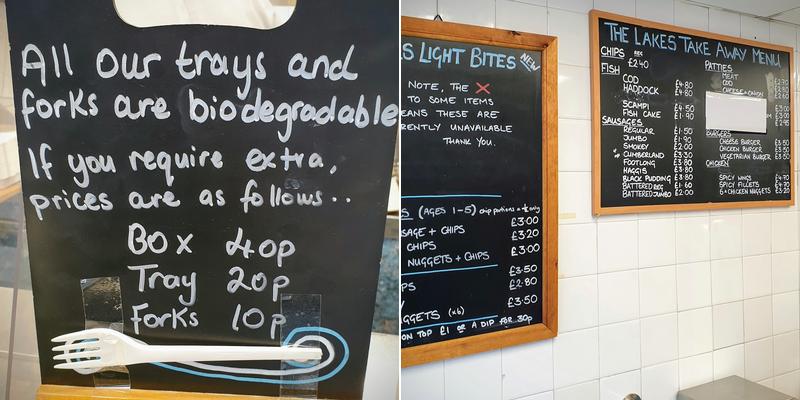 All our trays and
forks are biodegradable
If you require extra,
prices are as follows..
Box 40p
Tray 20p
Forks 10p
S LIGHT BITES NEW
NOTE, THE X
TO SOME ITEMS
EANS THESE ARE
RENTLY UNAVAILABLE
THANK YOU.
S (AGES 1-5) chip portions a ½ only
SAGE + CHIPS £3.00
CHIPS £3.20
NUGGETS + CHIPS £3.00
£3.50
PS £2.80
GGETS (x6) £3.50
ON TOP £1 OR A DIP FOR 30p
THE LAKES TAKE AWAY MENU
CHIPS REG £2.40
FISH
COD £4.80
HADDOCK £4.80
SCAMPI £4.50
FISH CAKE £1.90
SAUSAGES
REGULAR £1.50
JUMBO £1.90
SMOKEY £2.00
CUMBERLAND £3.30
FOOTLONG £3.80
HAGGIS £3.80
BLACK PUDDING £3.80
BATTERED REG £1.60
BATTERED JUMBO £2.00
PATTIES
MEAT £2.70
COD £2.80
CHEESE + ONION £2.60
£3.00
£3.00
£2.95
BURGERS
CHEESE BURGER £3.50
CHICKEN BURGER £3.50
VEGETARIAN BURGER £3.50
CHICKEN
SPICY WINGS £4.70
SPICY FILLETS £4.70
6 x CHICKEN NUGGETS £3.20